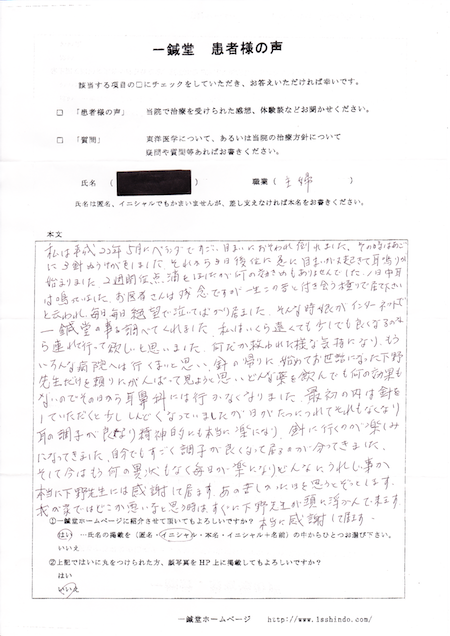 一鍼堂　患者様の声
該当する項目の□にチェックをしていただき、お答えいただければ幸いです。
□　「患者様の声」　当院で治療を受けられた感想、体験談などお聞かせください。
□　「質問」　東洋医学について、あるいは当院の治療方針について
疑問や質問等あればお書きください。
氏名　（　）　職業（　主婦　）
氏名は匿名、イニシャルでもかまいませんが、差し支えなければ本名をお書きください。
本文
私は平成22年5月にベランダですごい目まいにおそわれ倒れました。その時はあごに
3針ぬうけがをしました。それから3日後位に急に目まいが起きて耳鳴りが
始まりました。2週間位点滴をしましたが何のききめもありませんでした。1日中耳
は鳴っていました。お医者さんは残念ですが一生この音と付き合う積りで居て下さい
と云われ、毎日毎日絶望で泣いてばかり居ました。そんな時娘がインターネットで
一鍼堂の事を調べてくれました。私はいくら遠くても少しでも良くなるのな
ら連れて行って欲しいと思いました。何だか救われた様な気持になり、もう
いろんな病院へは行くまいと思い、針の帰りに始めてお世話になった下野
先生だけを頼りにがんばって見ようと思い、どんな薬を飲んでも何の効果も
ないのでその日から耳鼻科には行かなくなりました。最初の内は針を
していただくと少ししんどくなっていましたが日がたつにつれてそれもなくなり
耳の調子が良くなり精神的にも本当に楽になり、針に行くのが楽しみ
になってきました。自分でもすごく調子が良くなって居るのが分ってきました。
そして今はもう何の異状もなく毎日が楽になりどんなにうれしい事か
本当に下野先生には感謝して居ます。あの苦しの日々を思うとぞっとします。
我が家ではどこか悪いなと思う時はすぐに下野先生が頭に浮かんで来ます。
本当に感謝して居ます。
①一鍼堂ホームページに紹介させて頂いてもよろしいですか？
はい　…氏名の掲載を（匿名・イニシャル・本名・イニシャル＋名前）の中からひとつお選び下さい。
いいえ
②上記ではいに丸をつけられた方、顔写真をHP上に掲載してもよろしいですか？
はい
いいえ
一鍼堂ホームページ　http://www.1sshindo.com/